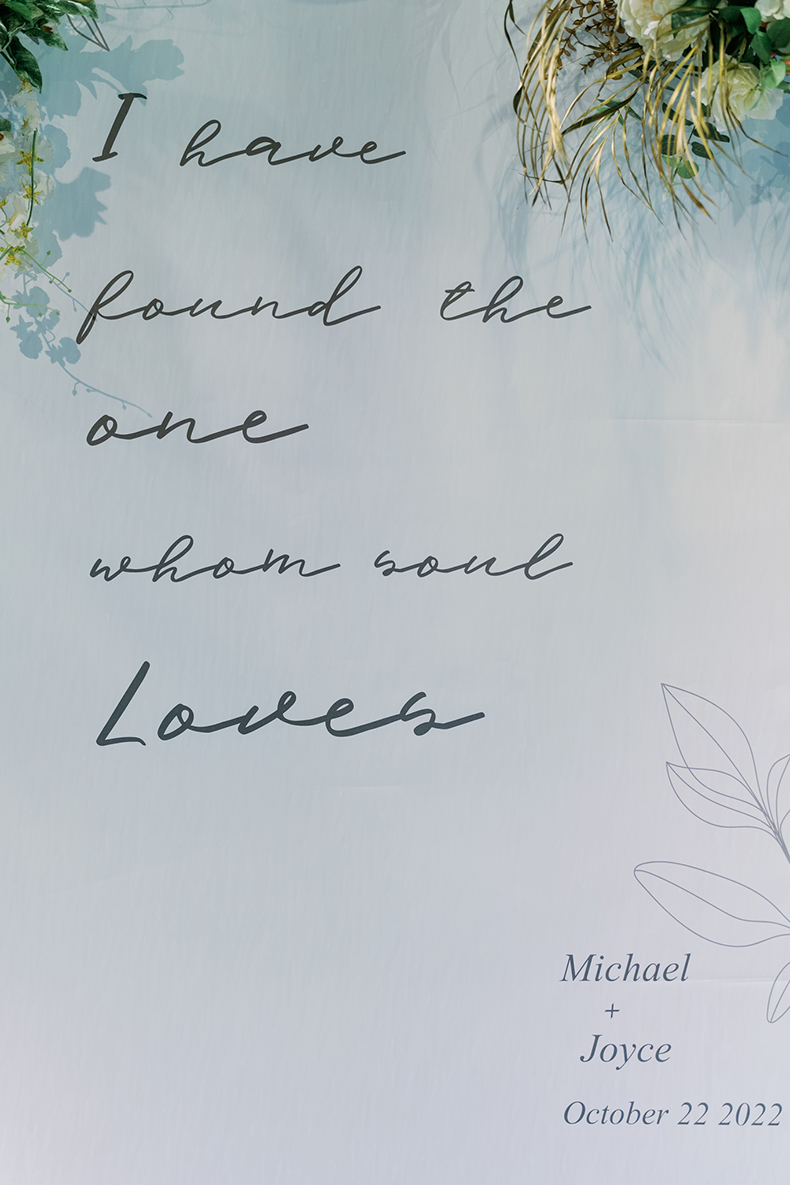 I have
found the
one
whom soul
Loves
Michael
+
Joyce
October 22 2022